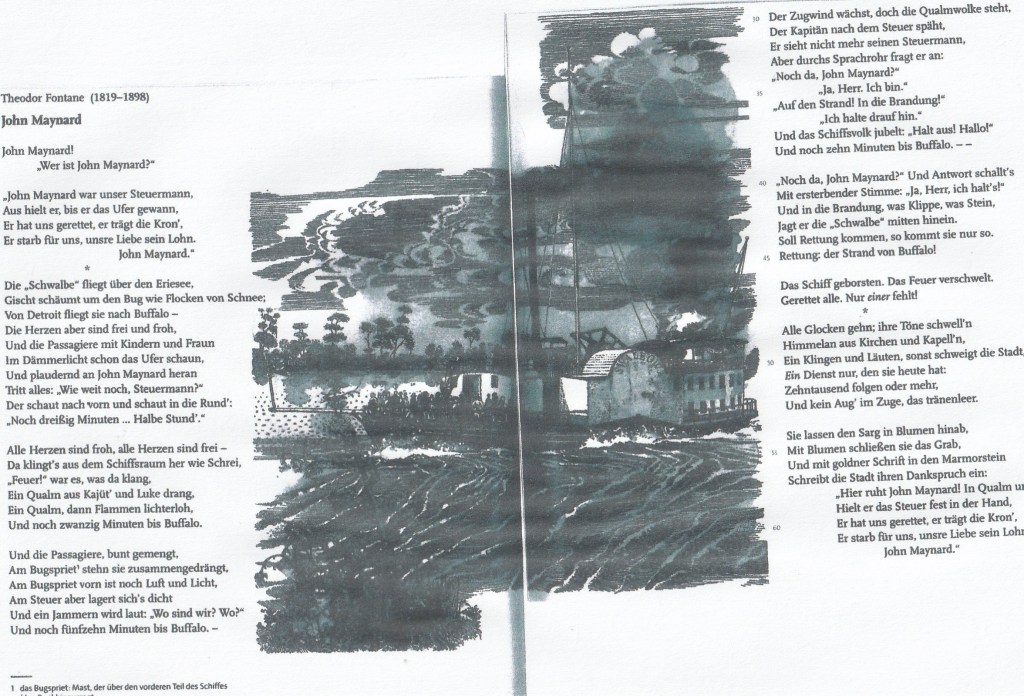 Theodor Fontane (1819–1898)
John Maynard
John Maynard!
„Wer ist John Maynard?“
„John Maynard war unser Steuermann,
Aus hielt er, bis er das Ufer gewann,
Er hat uns gerettet, er trägt die Kron’,
Er starb für uns, unsre Liebe sein Lohn.
John Maynard.“
*
Die „Schwalbe“ fliegt über den Eriesee,
Gischt schäumt um den Bug wie Flocken von Schnee;
Von Detroit fliegt sie nach Buffalo –
Die Herzen aber sind frei und froh,
Und die Passagiere mit Kindern und Fraun
Im Dämmerlicht schon das Ufer schaun,
Und plaudernd an John Maynard heran
Tritt alles: „Wie weit noch, Steuermann?“
Der schaut nach vorn und schaut in die Rund’:
„Noch dreißig Minuten ... Halbe Stund’.“
Alle Herzen sind froh, alle Herzen sind frei –
Da klingt’s aus dem Schiffsraum her wie Schrei,
„Feuer!“ war es, was da klang,
Ein Qualm aus Kajüt’ und Luke drang,
Ein Qualm, dann Flammen lichterloh,
Und noch zwanzig Minuten bis Buffalo.
Und die Passagiere, bunt gemengt,
Am Bugspriet¹ stehn sie zusammengedrängt,
Am Bugspriet vorn ist noch Luft und Licht,
Am Steuer aber lagert sich’s dicht
Und ein Jammern wird laut: „Wo sind wir? Wo?“
Und noch fünfzehn Minuten bis Buffalo. –
1 das Bugspriet: Mast, der über den vorderen Teil des Schiffes
30 Der Zugwind wächst, doch die Qualmwolke steht,
Der Kapitän nach dem Steuer späht,
Er sieht nicht mehr seinen Steuermann,
Aber durchs Sprachrohr fragt er an:
„Noch da, John Maynard?“
35 „Ja, Herr. Ich bin.“
„Auf den Strand! In die Brandung!“
„Ich halte drauf hin.“
Und das Schiffsvolk jubelt: „Halt aus! Hallo!“
Und noch zehn Minuten bis Buffalo. – –
40 „Noch da, John Maynard?“ Und Antwort schallt’s
Mit ersterbender Stimme: „Ja, Herr, ich halt’s!“
Und in die Brandung, was Klippe, was Stein,
Jagt er die „Schwalbe“ mitten hinein.
Soll Rettung kommen, so kommt sie nur so.
45 Rettung: der Strand von Buffalo!
Das Schiff geborsten. Das Feuer verschwelt.
Gerettet alle. Nur einer fehlt!
*
Alle Glocken gehn; ihre Töne schwell’n
Himmelan aus Kirchen und Kapell’n,
50 Ein Klingen und Läuten, sonst schweigt die Stadt,
Ein Dienst nur, den sie heute hat:
Zehntausend folgen oder mehr,
Und kein Aug’ im Zuge, das tränenleer.
Sie lassen den Sarg in Blumen hinab,
55 Mit Blumen schließen sie das Grab,
Und mit goldner Schrift in den Marmorstein
Schreibt die Stadt ihren Dankspruch ein:
„Hier ruht John Maynard! In Qualm
Hielt er das Steuer fest in der Hand,
60 Er hat uns gerettet, er trägt die Kron’,
Er starb für uns, unsre Liebe sein Lohn
John Maynard.“